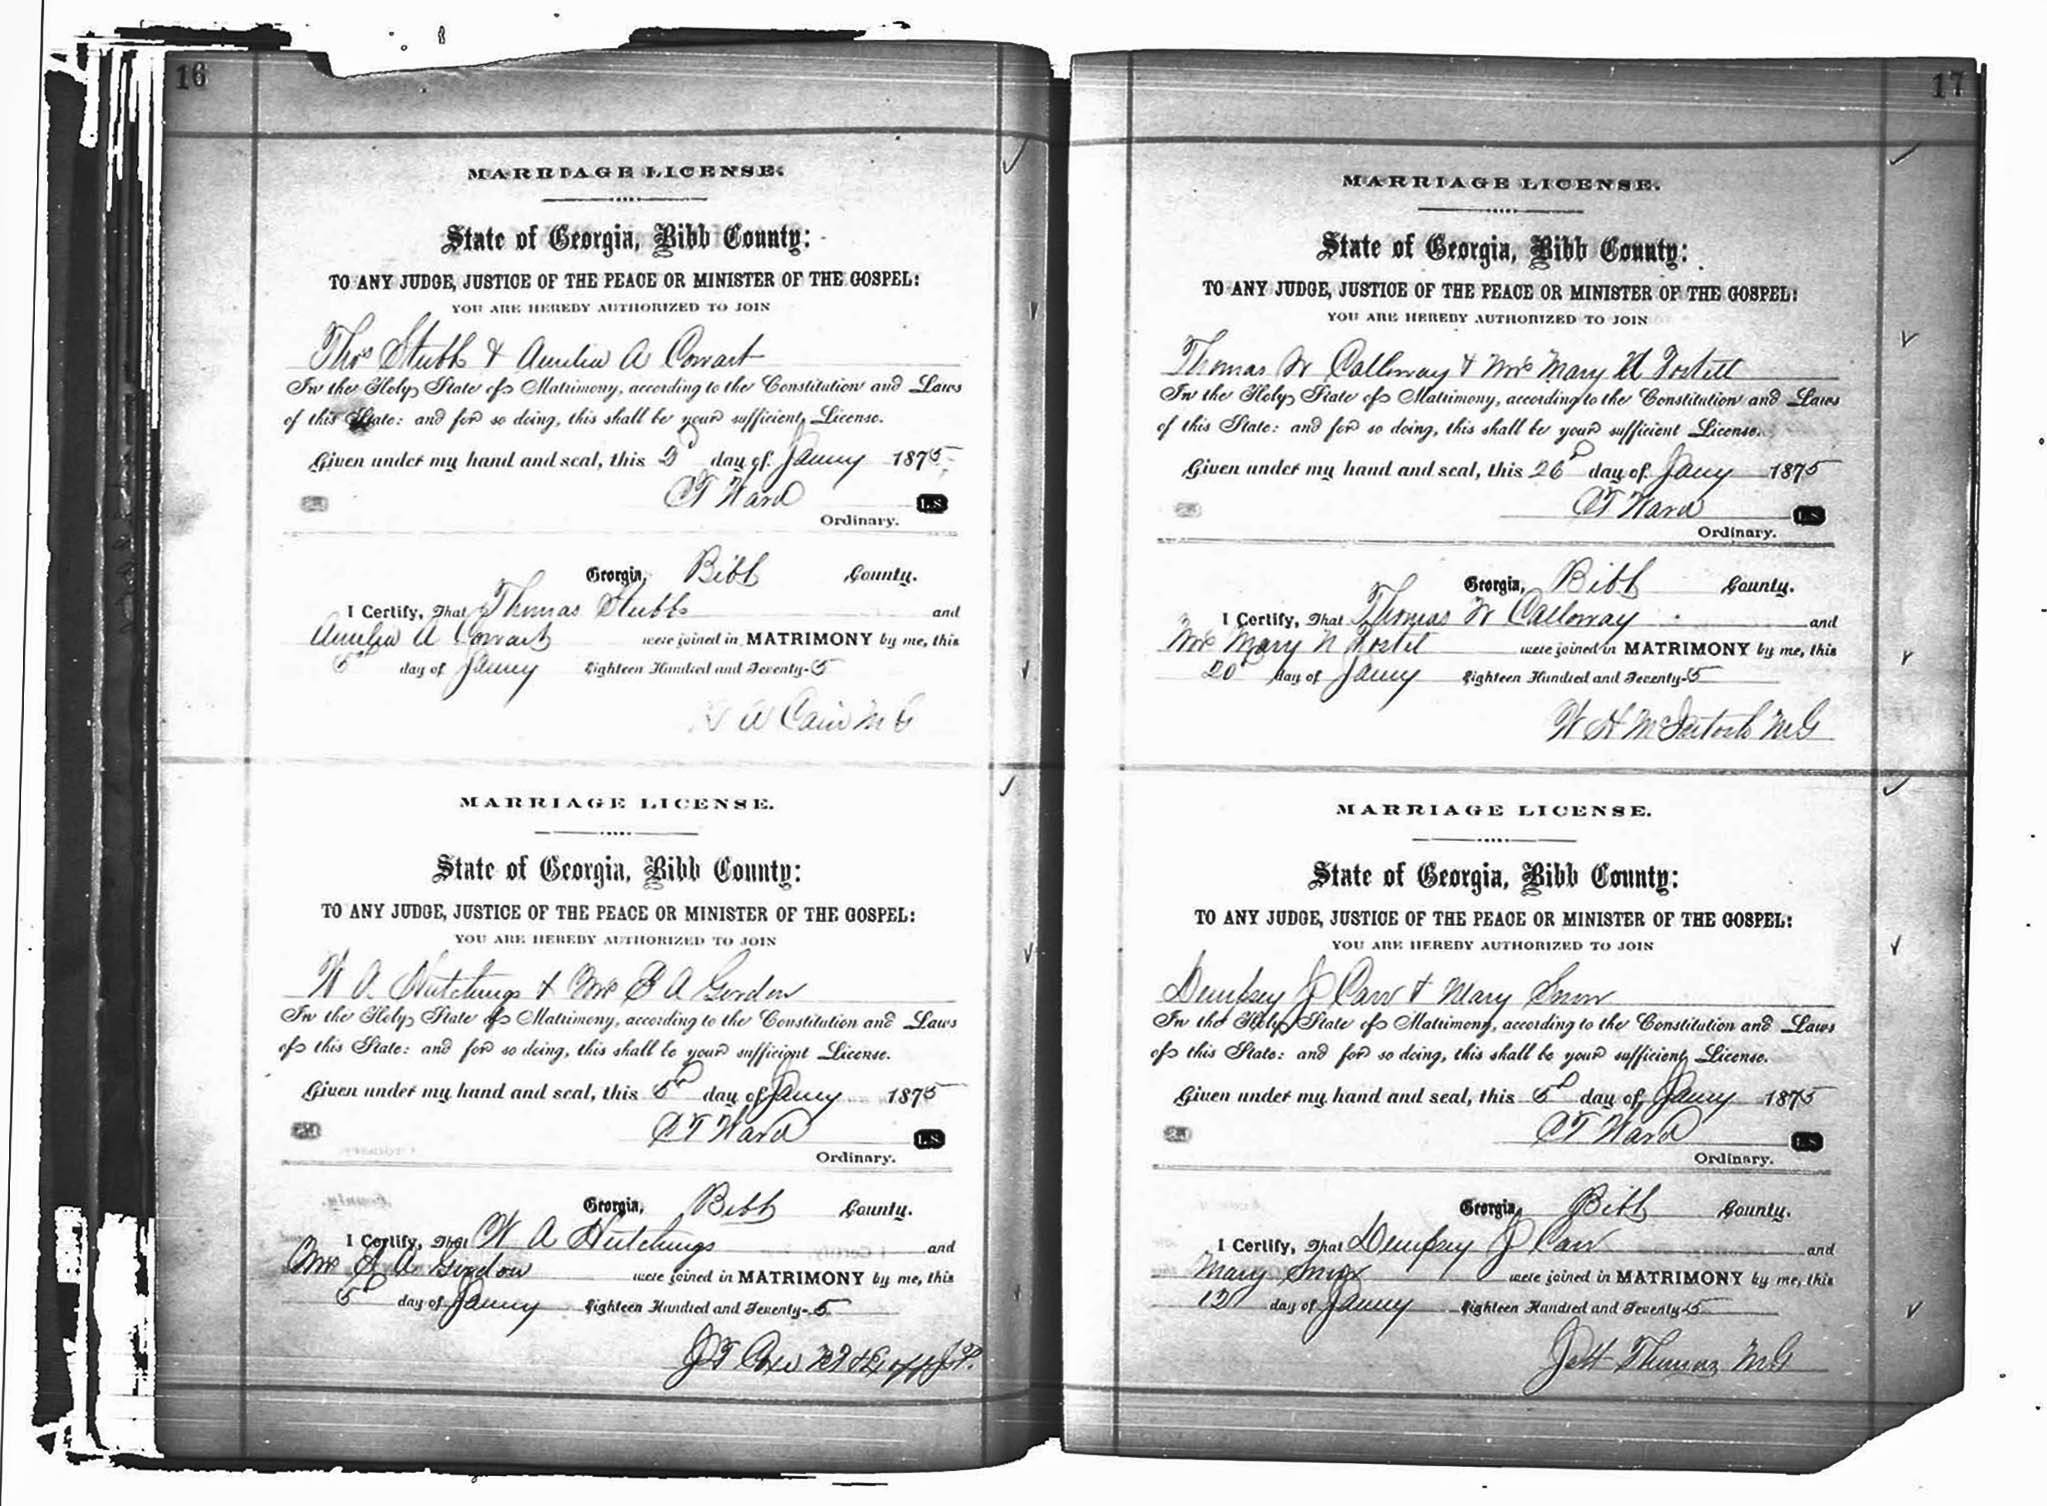 16
MARRIAGE LICENSE.
State of Georgia, Bibb County:
TO ANY JUDGE, JUSTICE OF THE PEACE OR MINISTER OF THE GOSPEL:
YOU ARE HEREBY AUTHORIZED TO JOIN
Thos Stubbs & Amelia A Cowart
In the Holy State of Matrimony, according to the Constitution and Laws
of this State: and for so doing, this shall be your sufficient License.
Given under my hand and seal, this day of Jany 1875
C T Ward L.S.
Ordinary.
Georgia, Bibb County.
I Certify, That Thomas Stubbs and
Amelia A Cowart were joined in MATRIMONY by me, this
5 day of Jany Eighteen Hundred and Seventy-5
A Cain M G
MARRIAGE LICENSE.
State of Georgia, Bibb County:
TO ANY JUDGE, JUSTICE OF THE PEACE OR MINISTER OF THE GOSPEL:
YOU ARE HEREBY AUTHORIZED TO JOIN
W A Hutchings & Mrs A Gordon
In the Holy State of Matrimony, according to the Constitution and Laws
of this State: and for so doing, this shall be your sufficient License.
Given under my hand and seal, this 5d day of Jany 1875
C T Ward L.S.
Ordinary.
Georgia, Bibb County.
I Certify, That W A Hutchings and
Mrs A Gordon were joined in MATRIMONY by me, this
5d day of Jany Eighteen Hundred and Seventy-5
J T
17
MARRIAGE LICENSE.
State of Georgia, Bibb County:
TO ANY JUDGE, JUSTICE OF THE PEACE OR MINISTER OF THE GOSPEL:
YOU ARE HEREBY AUTHORIZED TO JOIN
Thomas W Calloway & Mrs Mary
In the Holy State of Matrimony, according to the Constitution and Laws
of this State: and for so doing, this shall be your sufficient License.
Given under my hand and seal, this 26d day of Jany 1875
C T Ward L.S.
Ordinary.
Georgia, Bibb County.
I Certify, That Thomas W Calloway and
Mrs Mary were joined in MATRIMONY by me, this
day of Jany Eighteen Hundred and Seventy-5
W H McIntosh M G
MARRIAGE LICENSE.
State of Georgia, Bibb County:
TO ANY JUDGE, JUSTICE OF THE PEACE OR MINISTER OF THE GOSPEL:
YOU ARE HEREBY AUTHORIZED TO JOIN
Dempsey J Carr & Mary Snow
In the Holy State of Matrimony, according to the Constitution and Laws
of this State: and for so doing, this shall be your sufficient License.
Given under my hand and seal, this 5d day of Jany 1875
C T Ward L.S.
Ordinary.
Georgia, Bibb County.
I Certify, That Dempsey J Carr and
Mary Snow were joined in MATRIMONY by me, this
12 day of Jany Eighteen Hundred and Seventy-5
Thomas M G